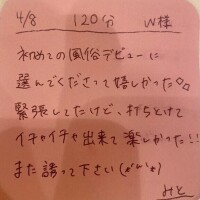 4/8 120分 W様
初めての風俗デビューに
選んでくださって嬉しかった♡♡
緊張してたけど、打ちとけて
イチャイチャ出来て楽しかった!!
また誘って下さい
みと